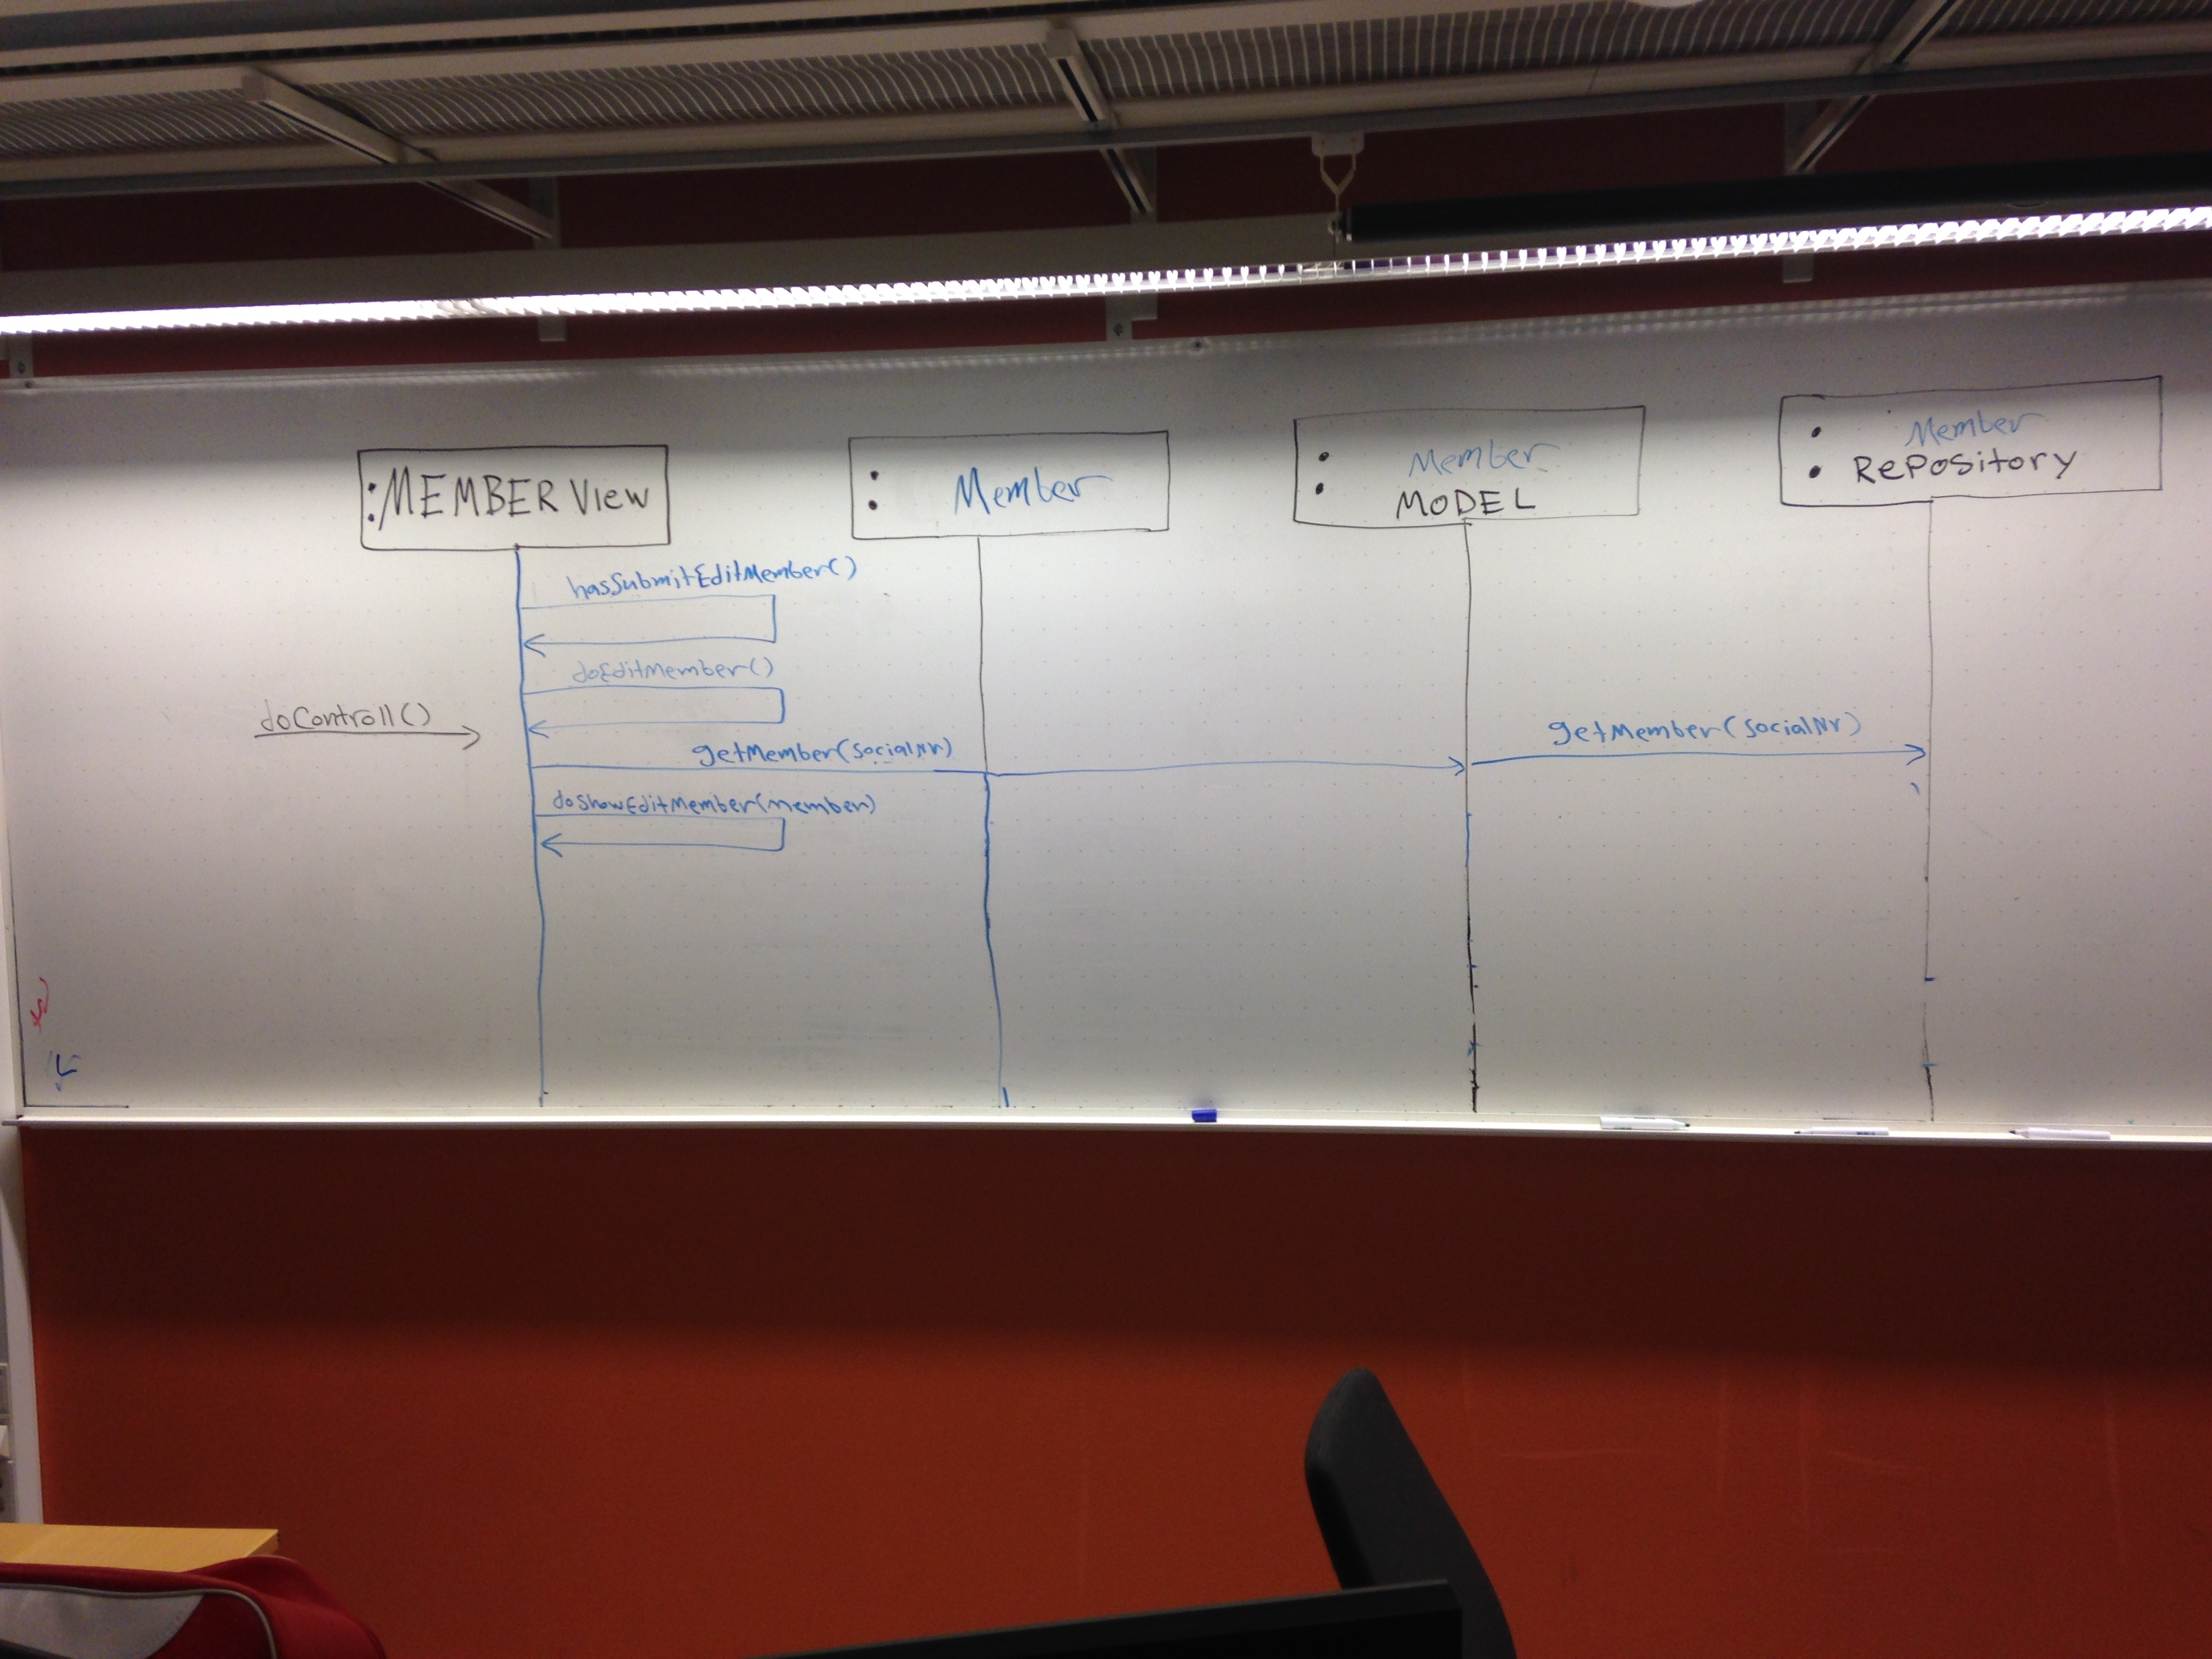 :MEMBER View
: Member
: Member
MODEL
: Member
Repository
hasSubmitEditMember()
doEditMember()
doControll()
getMember(socialNr)
getMember(socialNr)
doShowEditMember(member)